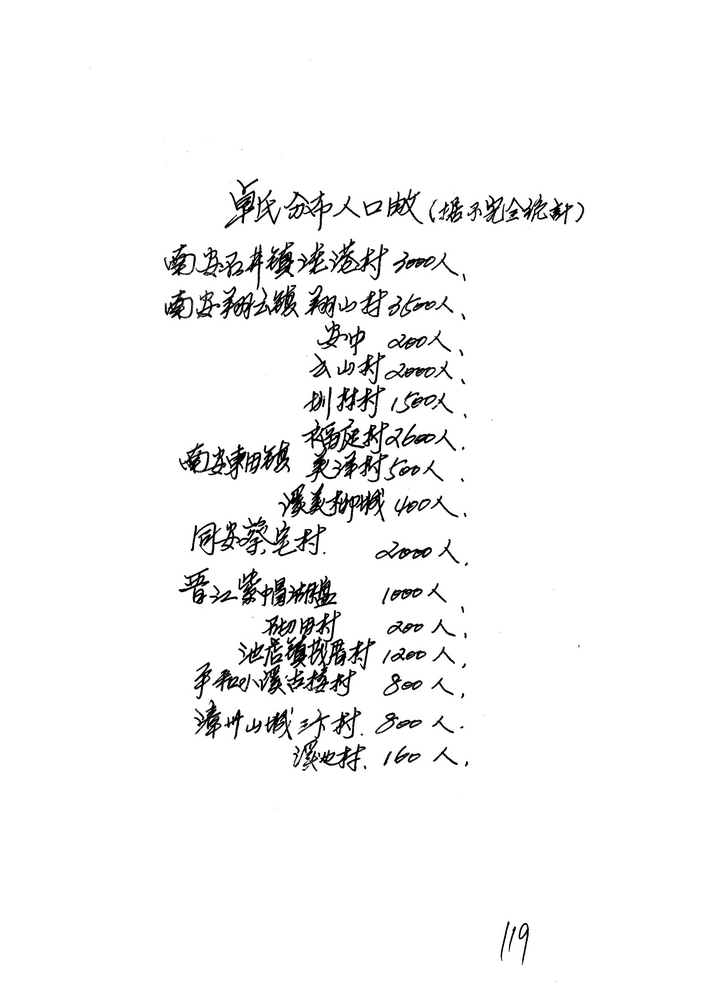 卓氏分布人口数(据不完全统計)
南安石井镇淗港村 3000人、
南安翔云镇 翔山村 3500人、
安中 200人、
云山村 2000人、
圳林村 1500人、
福庭村 2600人、
南安東田镇 美洋村 500人、
溪美柳城 400人、
同安蔡宅村. 2000人、
晋江紫帽湖盘 1000人、
砌田村 200人、
池店镇 村 1200人、
平和小溪古楼村 800人、
漳州山城三卞村. 800人.
溪池村、160人、
119